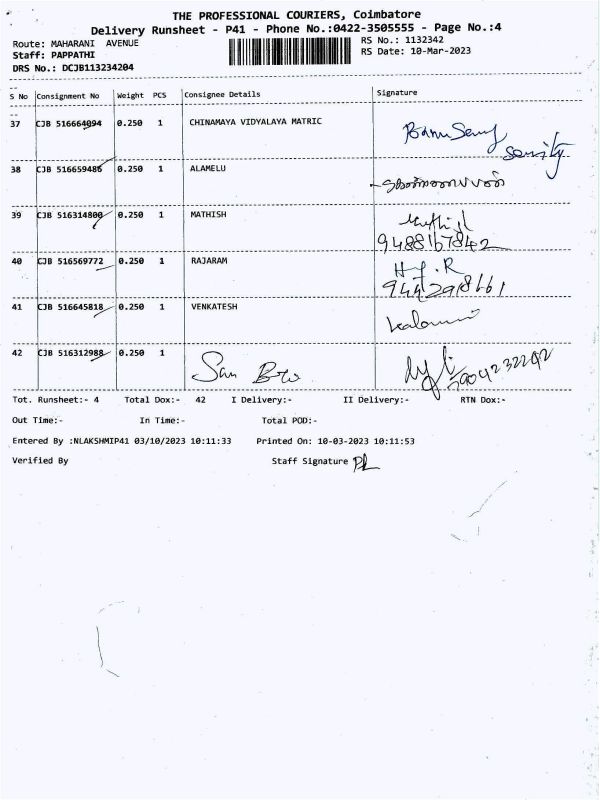 THE PROFESSIONAL COURIERS, Coimbatore
Delivery Runsheet - P41 - Phone No.:0422-3505555 - Page No.:4
Route: MAHARANI AVENUE RS No.: 1132342
Staff: PAPPATHI RS Date: 10-Mar-2023
DRS No.: DCJB113234204
S No Consignment No Weight PCS Consignee Details Signature
37 CJB 516664094 0.250 1 CHINAMAYA VIDYALAYA MATRIC
38 CJB 516659486 0.250 1 ALAMELU
39 CJB 516314800 0.250 1 MATHISH
9488167842
40 CJB 516569772 0.250 1 RAJARAM
41 CJB 516645818 0.250 1 VENKATESH
42 CJB 516312988 0.250 1
Tot. Runsheet:- 4 Total Dox:- 42 I Delivery:- II Delivery:- RTN Dox:-
Out Time:- In Time:- Total POD:-
Entered By :NLAKSHMIP41 03/10/2023 10:11:33 Printed On: 10-03-2023 10:11:53
Verified By Staff Signature